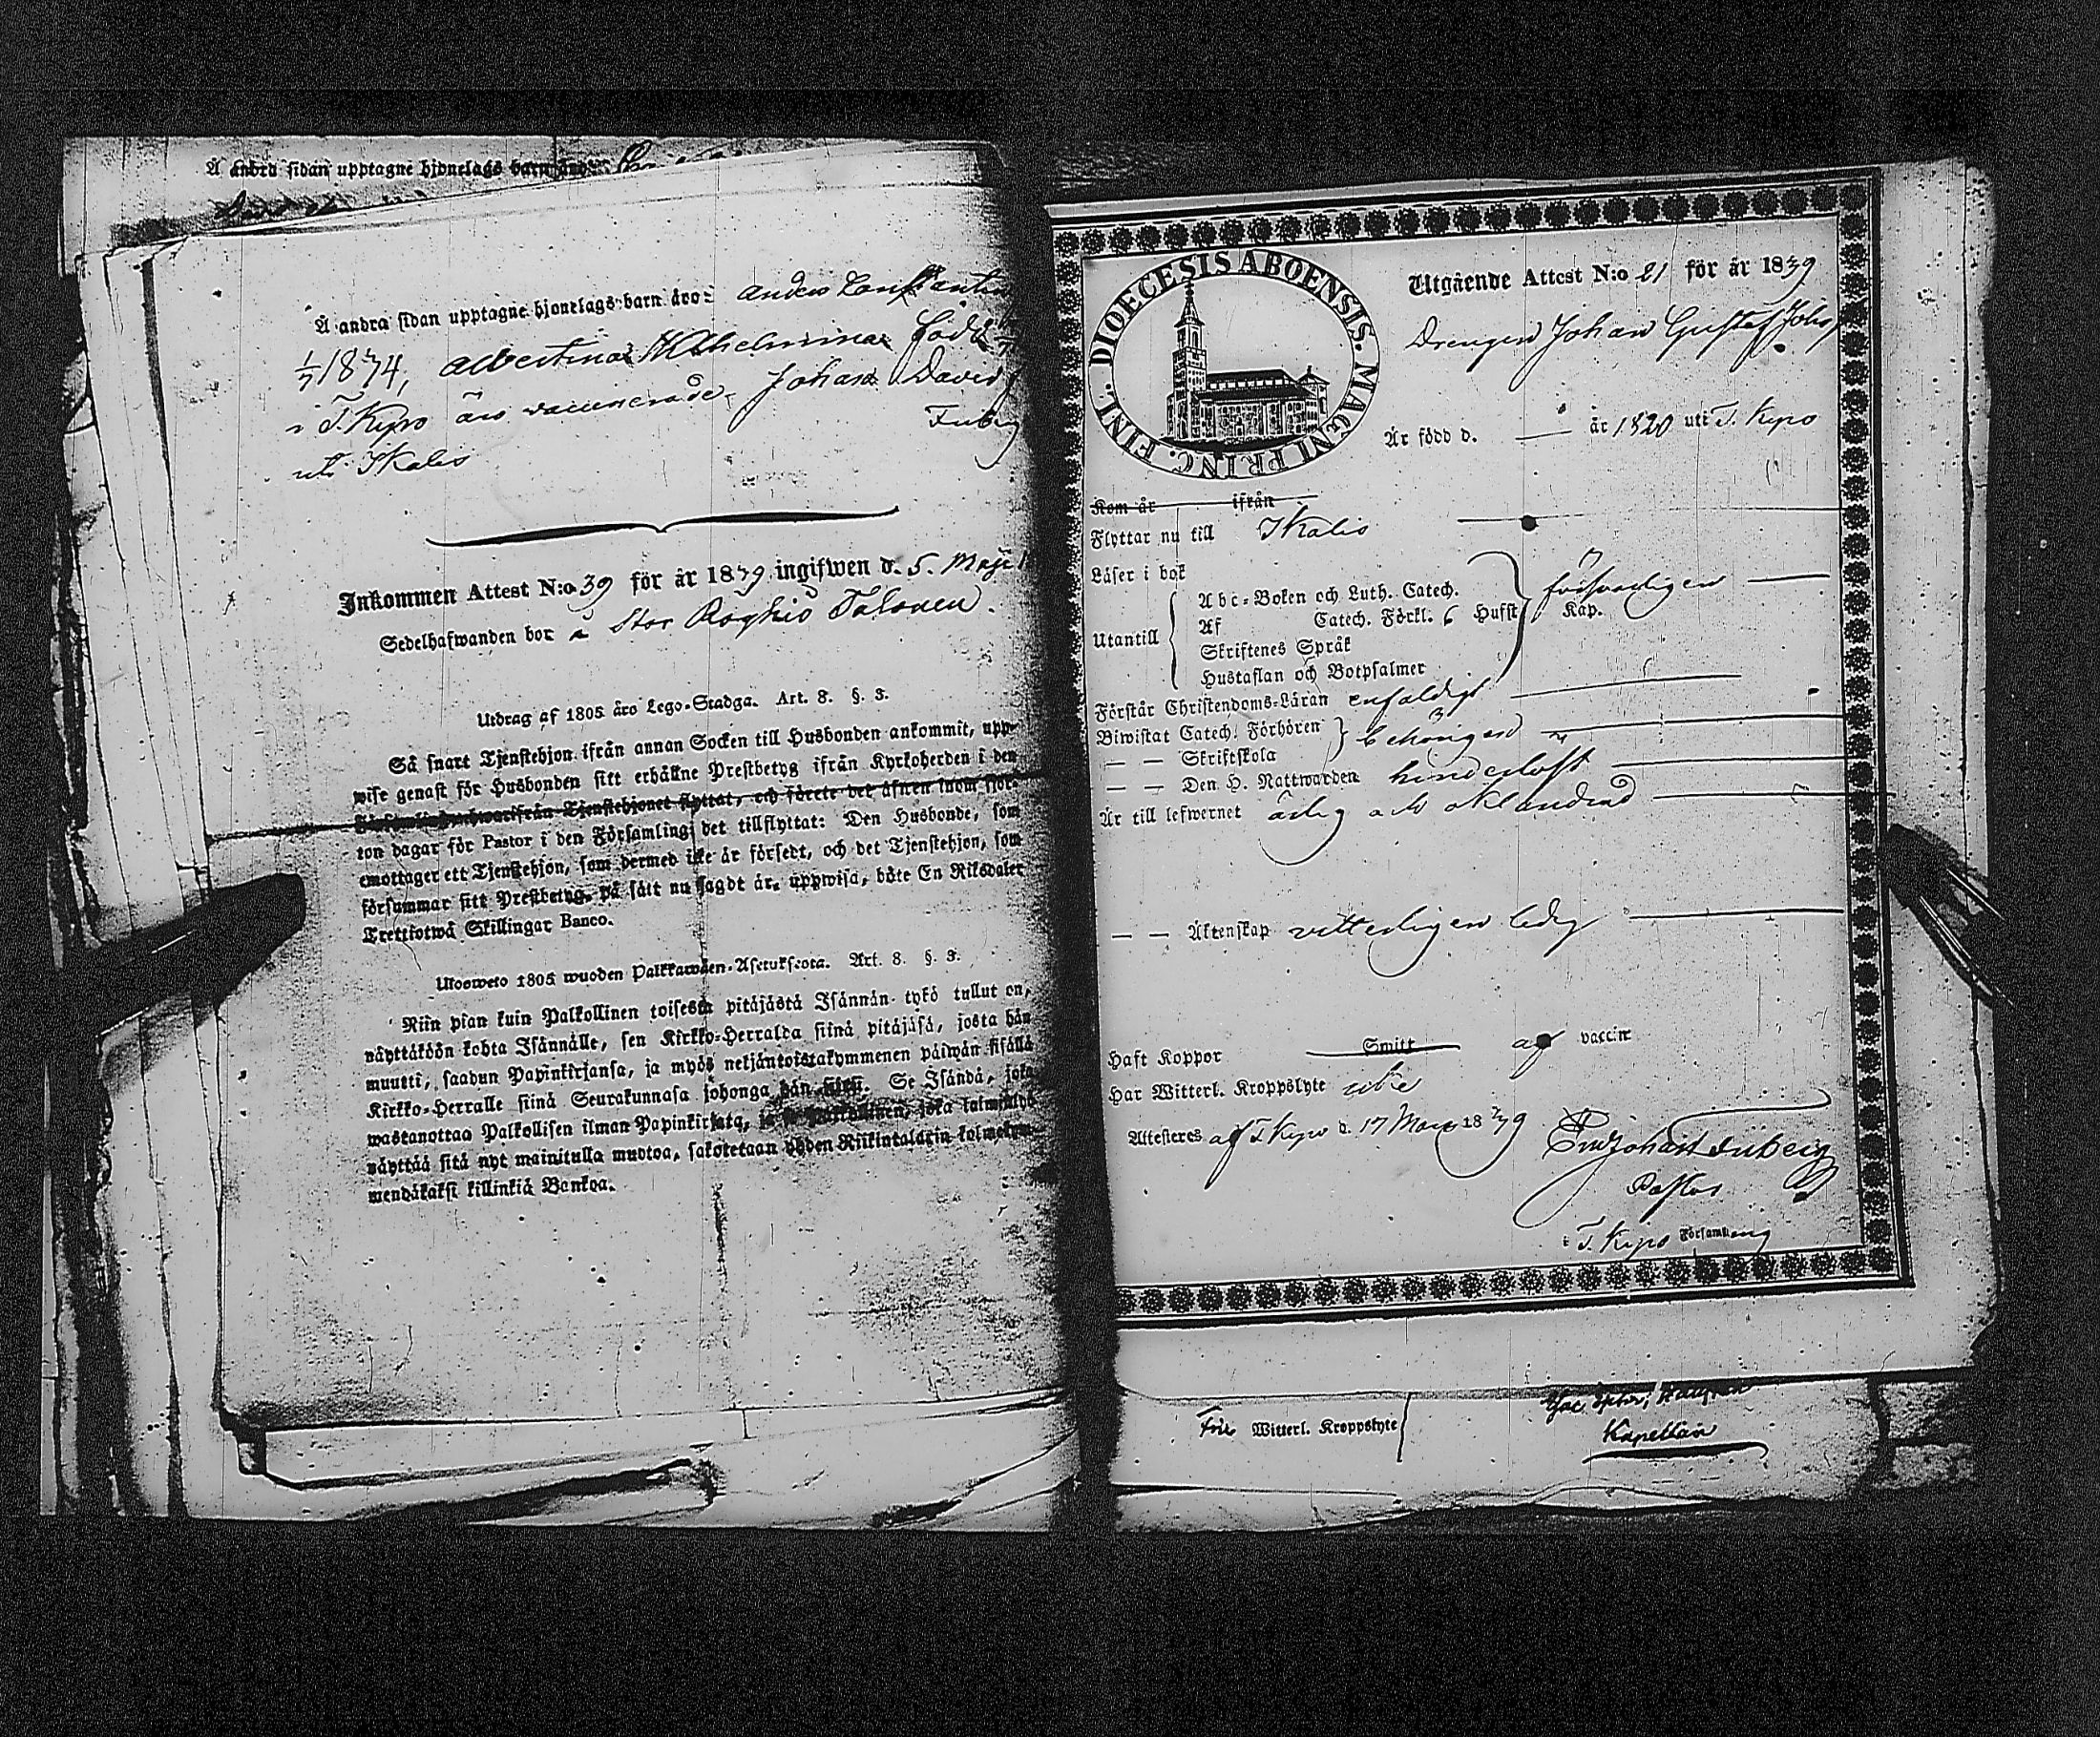 Å andra sidan upptagne hjonelags barn äro:
Å andra sidan upptagne hjonelags barn äro: Anders Constantin
1/7 1834, Albertina Wilhelmina född
i T. Kyro äro vaccinerade, Johan David
uti Ikalis Friberg
Inkommen Attest N:o 39 för år 1839 ingifwen d. 5. Maji
Sedelhafwanden bor å Stor Röyhiö Talonen.
Utdrag af 1805 års Lego-Stadga. Art. 8. §. 3.
Så snart Tjenstehjon ifrån annan Socken till Husbonden ankommit, upp-
wise genast för Husbonden sitt erhållne Prestbetyg ifrån Kyrkoherden i den
Församling hwarifrån Tjenstehjonet flyttat, och förete det äfwen inom fjor-
ton dagar för Pastor i den Församling det tillflyttat: Den Husbonde, som
emottager ett Tjenstehjon, som dermed icke är försedt, och det Tjenstehjon, som
försummar sitt Prestbetyg på sätt nu sagdt är, uppwisa, böte En Riksdaler
Trettiotwå Skillingar Banco.
Ulosweto 1805 wuoden Palkkawäen-Asetuksesta. Art. 8. §. 3.
Niin pian kuin Palkollinen toisesta pitäjästä Isännän tykö tullut on,
näyttäköön kohta Isännälle, sen Kirkko-Herralda siinä pitäjäsä, josta hän
muutti, saadun Papinkirjansa, ja myös neljäntoistakymmenen päiwän sisällä
Kirkko-Herralle siinä Seurakunnasa johonga hän siirsi. Se Isändä, joka
wastanottaa Palkollisen ilman Papinkirjata, ja se Palkollinen, joka laiminlyö
näyttää sitä nyt mainitulla muotoa, sakotetaan yhden Riikintalarin kolmekym-
mendäkaksi killinkiä Bankoa.
DIOECESIS ABOENSIS. MAGNI PRINC. FINL.
Utgående Attest N:o 21 för år 1839
Drengen Johan Gustaf Johs
Är född d. — år 1820 uti T. Kyro
Kom år ifrån
Flyttar nu till Ikalis
Läser i bok
Utantill
Abc-Boken och Luth. Catech.
Af Catech. Förkl. 6 Hufst Kap. försvarligen
Skriftenes Språk
Hustaflan och Botpsalmer
Förstår Christendoms-Läran enfaldigt
Biwistat Catech. Förhören behörigen
— — Skriftskola
— — Den H. Nattwarden hinderlöst
Är till lefwernet ärlig och oklandrad
— — Äktenskap vitterligen ledig
Haft Koppor Smitt af vaccin
Har Witterl. Kroppslyte icke
Attesteras af T. Kyro d. 17 Mars 1839 Johan Friberg
Pastor
i T. Kyro Församling
Fri Witterl. Kroppslyte
Kapellan